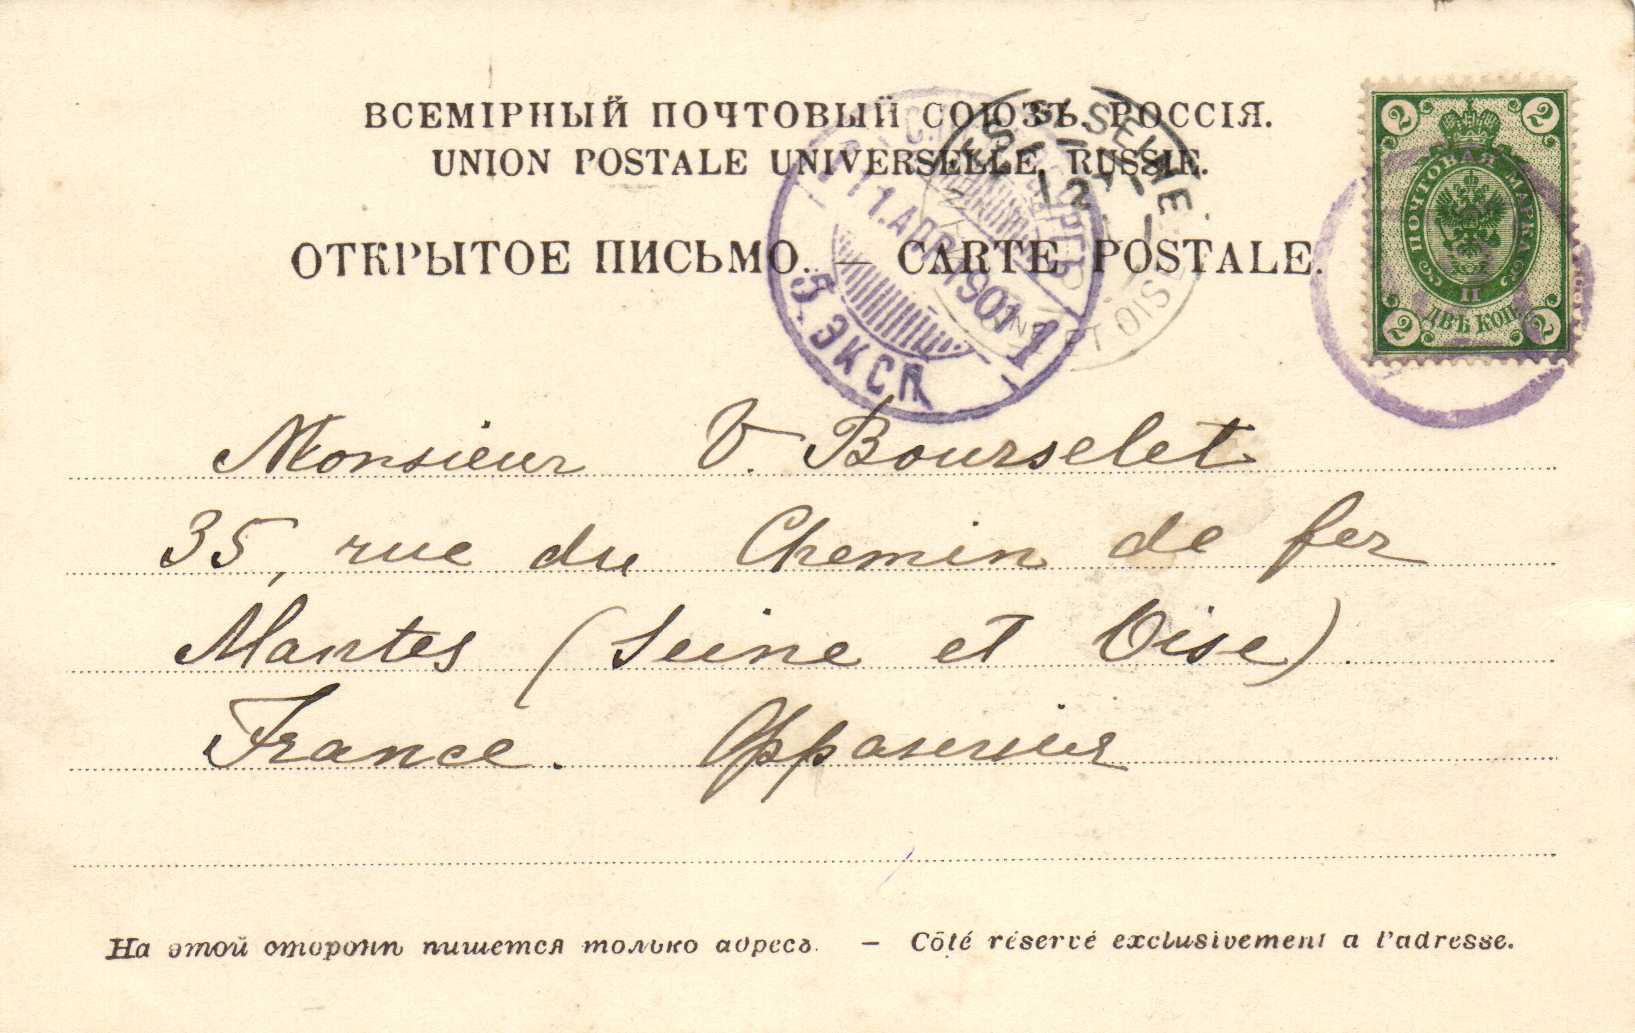 ВСЕМІРНЫЙ ПОЧТОВЫЙ СОЮЗЪ. РОССІЯ.
UNION POSTALE UNIVERSELLE. RUSSIE.
ОТКРЫТОЕ ПИСЬМО. — CARTE POSTALE.
2 2
ПОЧТОВАЯ МАРКА
2 ДВѢ КОП. 2
11.АПР.1901
1
5. ЭКСП.
S/SEINE
ET OISE
Monsieur V. Bourselet
35, rue du Chemin de fer
Mantes (Seine et Oise)
France.
На этой сторонѣ пишется только адресъ. — Côté réservé exclusivement a l'adresse.